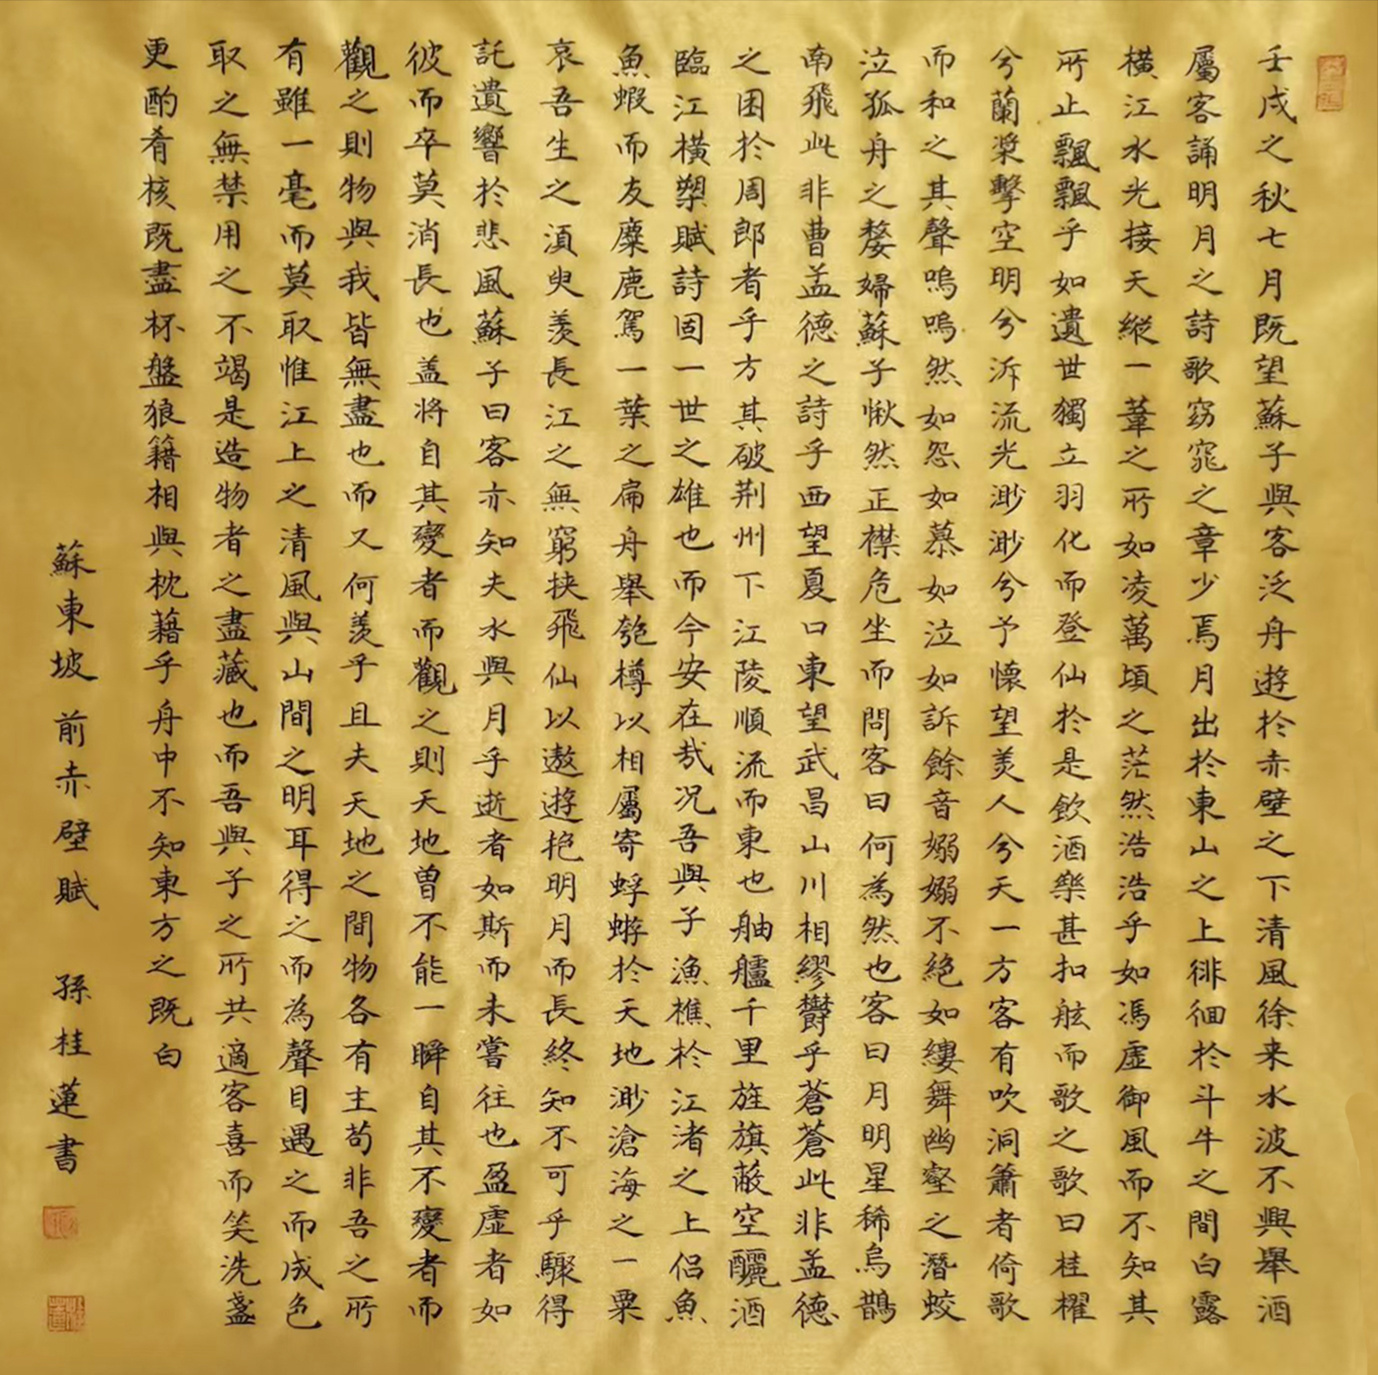 壬戌之秋七月既望蘇子與客泛舟遊於赤壁之下清風徐来水波不興舉酒
屬客誦明月之詩歌窈窕之章少焉月出於東山之上徘徊於斗牛之間白露
橫江水光接天縱一葦之所如凌萬頃之茫然浩浩乎如馮虛御風而不知其
所止飄飄乎如遺世獨立羽化而登仙於是飲酒樂甚扣舷而歌之歌曰桂櫂
兮蘭槳擊空明兮泝流光渺渺兮予懷望美人兮天一方客有吹洞簫者倚歌
而和之其聲嗚嗚然如怨如慕如泣如訴餘音嫋嫋不絕如縷舞幽壑之潛蛟
泣孤舟之嫠婦蘇子愀然正襟危坐而問客曰何為然也客曰月明星稀烏鵲
南飛此非曹孟德之詩乎西望夏口東望武昌山川相繆鬱乎蒼蒼此非孟德
之困於周郎者乎方其破荆州下江陵順流而東也舳艫千里旌旗蔽空釃酒
臨江橫槊賦詩固一世之雄也而今安在哉况吾與子漁樵於江渚之上侣魚
魚蝦而友麋鹿駕一葉之扁舟舉匏樽以相屬寄蜉蝣於天地渺滄海之一粟
哀吾生之須臾羨長江之無窮挾飛仙以遨遊抱明月而長終知不可乎驟得
託遺響於悲風蘇子曰客亦知夫水與月乎逝者如斯而未嘗往也盈虛者如
彼而卒莫消長也盖将自其變者而觀之則天地曾不能一瞬自其不變者而
觀之則物與我皆無盡也而又何羨乎且夫天地之間物各有主苟非吾之所
有雖一毫而莫取惟江上之清風與山間之明耳得之而為聲目遇之而成色
取之無禁用之不竭是造物者之盡藏也而吾與子之所共適客喜而笑洗盞
更酌肴核既盡杯盤狼籍相與枕藉乎舟中不知東方之既白
蘇東坡前赤壁賦 孫桂蓮書